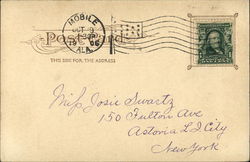 MOBILE
OCT 9
ALA.
Post Card
THIS SIDE FOR THE ADDRESS
Miss Josie Swartz
150 Fulton Ave
Astoria L I City
New York